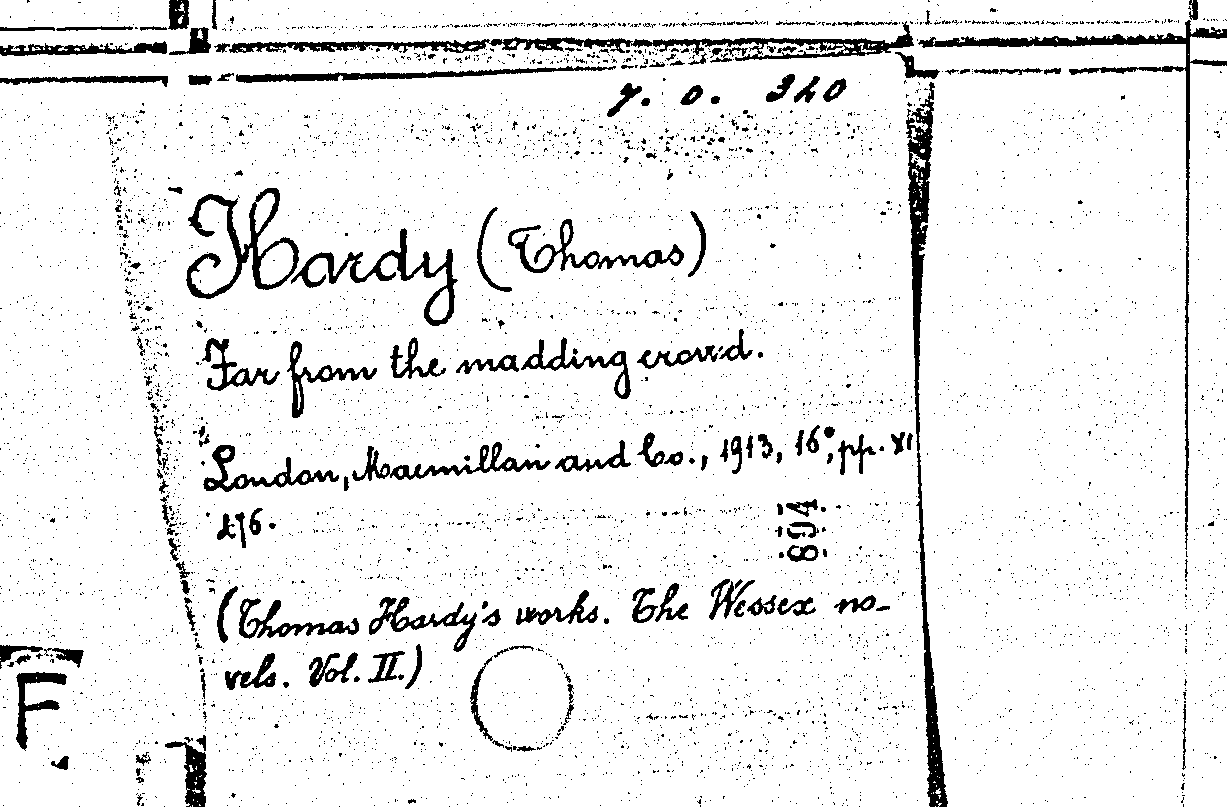 7. 0. 320
Hardy (Thomas)
Far from the madding crowd.
London, Macmillan and Co., 1913, 16°, pp. XI
476.
894
(Thomas Hardy's works. The Wessex no-
vels. Vol. II.)
F